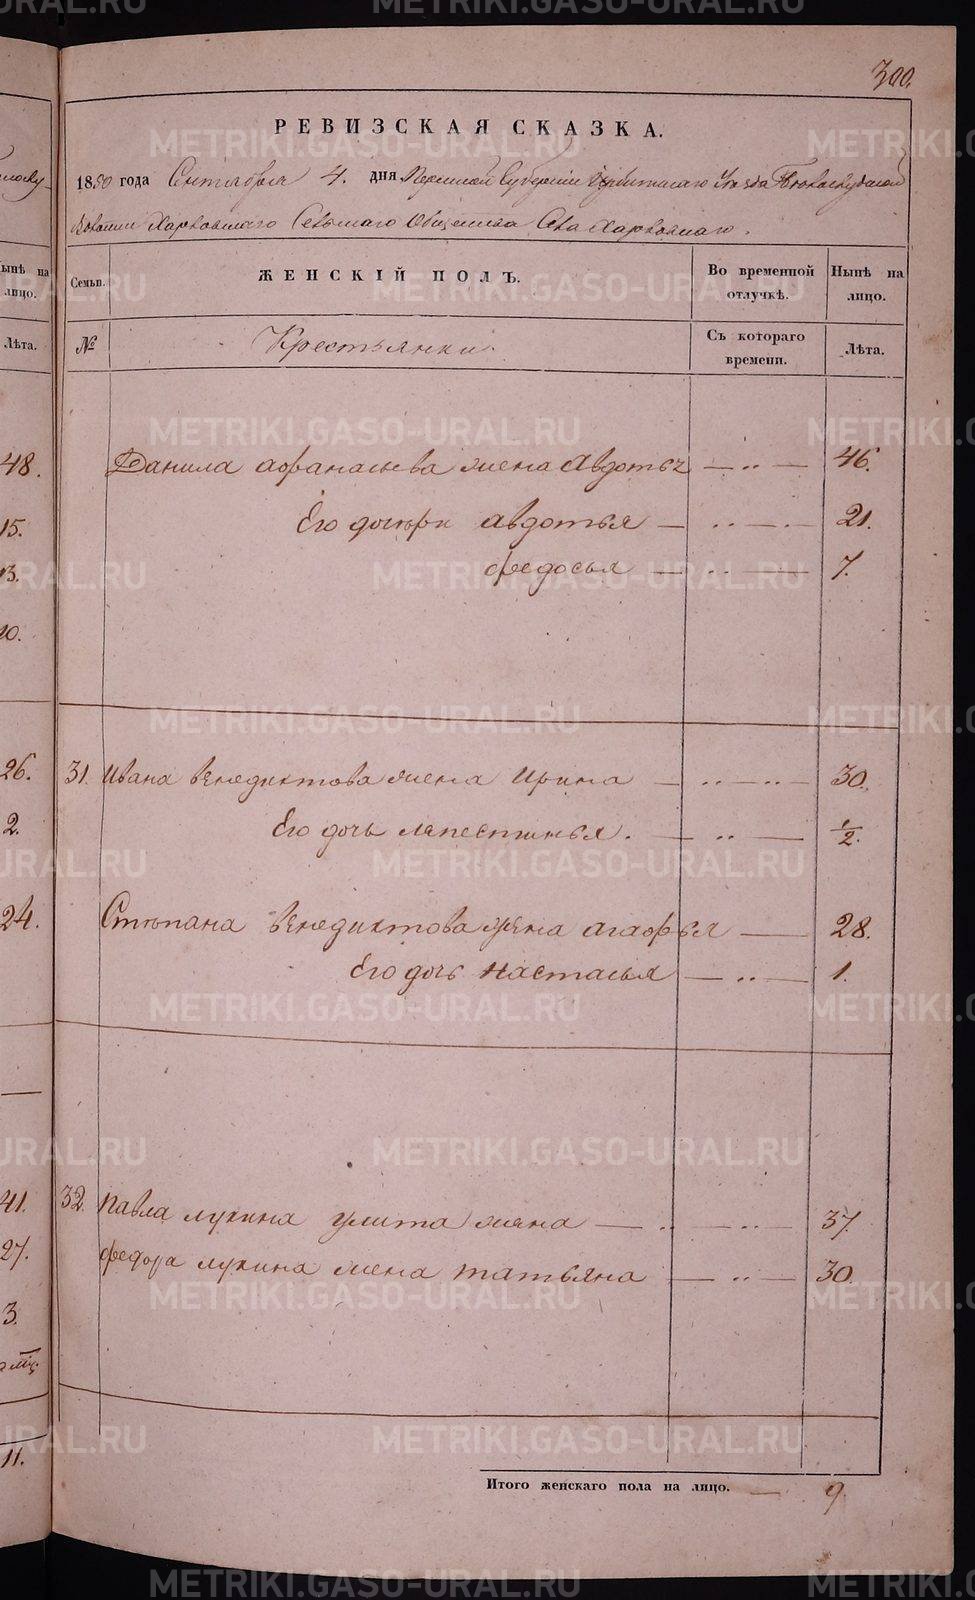 300.
РЕВИЗСКАЯ СКАЗКА.
1850 года Сентября 4. дня Пермской Губернiи Ирбитскаго Уезда
Волости Харловскаго Сельскаго Общества Села Харловскаго.
ынѣ на лицо.
Лѣта.
Семьи.
ЖЕНСКIЙ ПОЛЪ.
Во временной отлучкѣ.
Нынѣ на лицо.
№
Крестьянки.
Съ котораго времени.
Лѣта.
48.
Данила афанасьева жена Авдотья — „ — 46.
15.
Его дочери авдотья — „ — 21.
13.
федосья — „ — 7.
10.
26.
31. Ивана венедиктова жена Ирина — „ — „ — 30.
2.
Его дочь лапестинья. — „ — 1/2.
24.
Степана венедиктова жена агафья — 28.
Его дочь настасья — „ — 1.
41.
32. Павла лукина улита жена — „ — „ — 37.
27.
федора лукина жена татьяна — „ — 30.
3.
11.
Итого женскаго пола на лицо. — 9.
METRIKI.GASO-URAL.RU